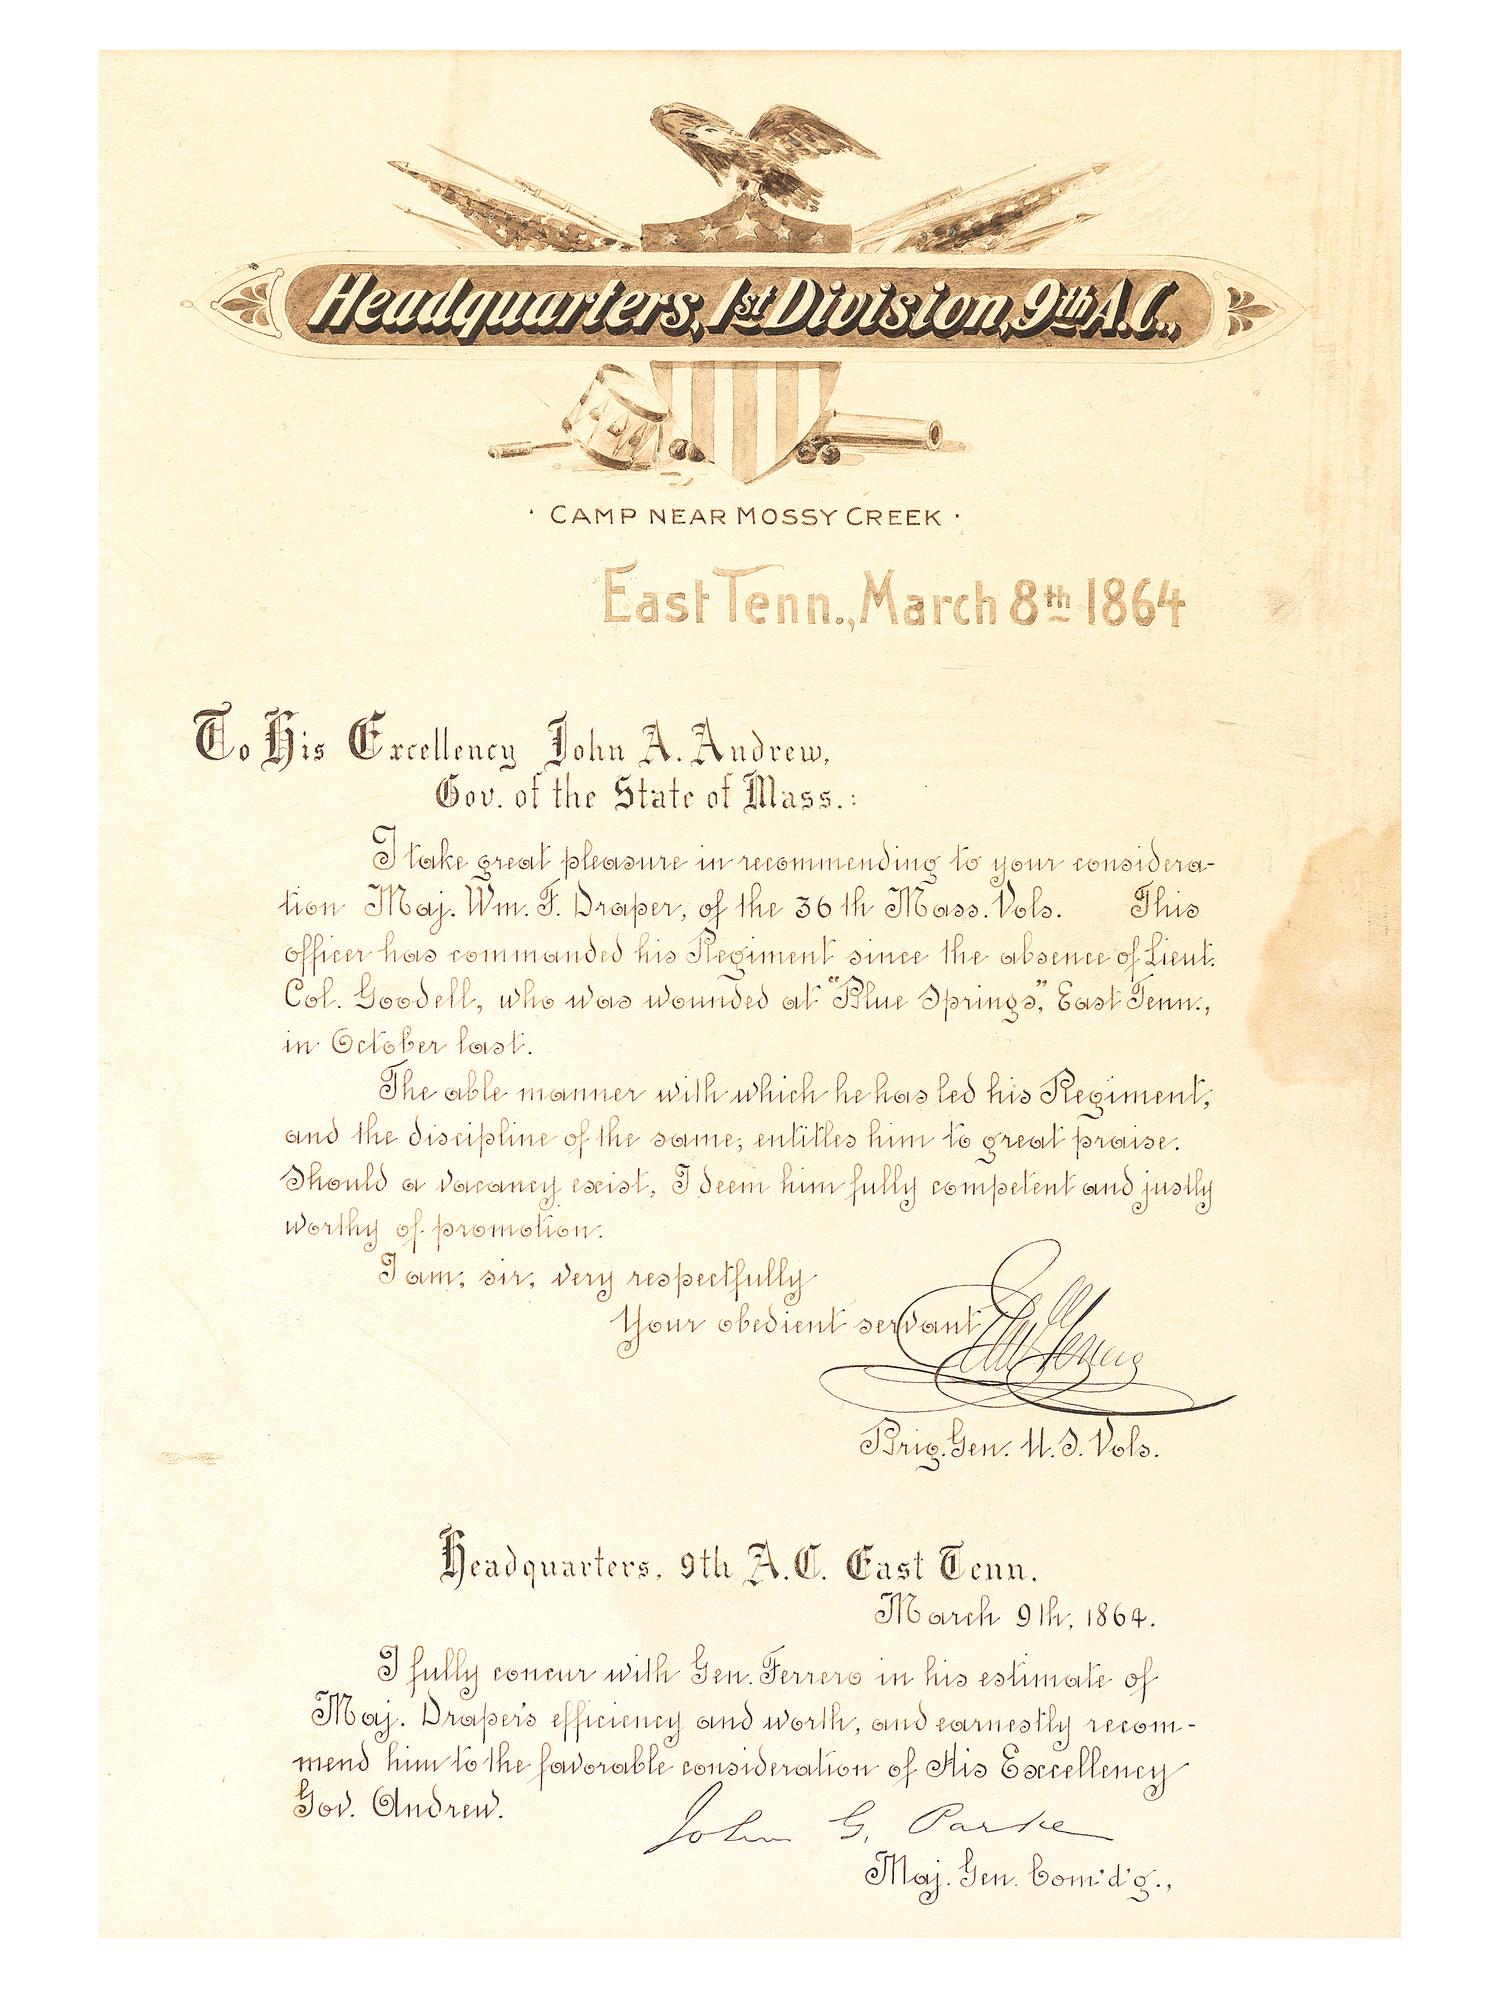 Headquarters, 1st Division, 9th A.C.,
· CAMP NEAR MOSSY CREEK ·
East Tenn., March 8th 1864
To His Excellency John A. Andrew,
Gov. of the State of Mass.:
I take great pleasure in recommending to your considera-
tion Maj. Wm. F. Draper, of the 36th Mass. Vols. This
officer has commanded his Regiment since the absence of Lieut.
Col. Goodell, who was wounded at "Blue Springs", East Tenn.,
in October last.
The able manner with which he has led his Regiment,
and the discipline of the same, entitles him to great praise.
Should a vacancy exist, I deem him fully competent and justly
worthy of promotion.
I am, sir, very respectfully
Your obedient servant
Brig. Gen. U.S. Vols.
Headquarters, 9th A.C. East Tenn.
March 9th, 1864.
I fully concur with Gen. Ferrero in his estimate of
Maj. Draper's efficiency and worth, and earnestly recom-
mend him to the favorable consideration of His Excellency
Gov. Andrew.
John G. Parke
Maj. Gen. Com'd'g.,